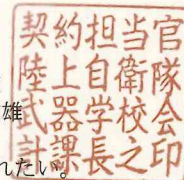 契約担当官
陸上自衛隊
武器学校会
計課長之印
雄
れたい。